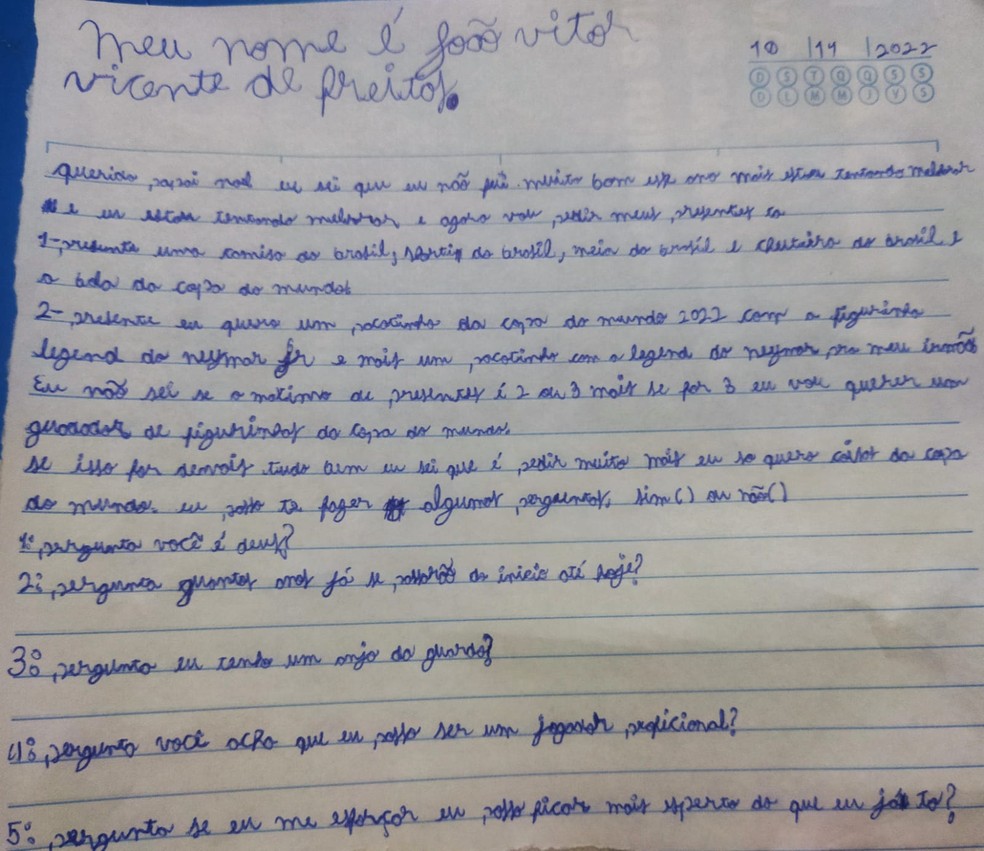 Meu nome é João vitor
vicente de freitas.
10 | 11 | 2022
D S T Q Q S S
D L M M J V S
querido papai noel eu sei que eu não fui muito bom esse ano mais estou tentando melhorar
e eu estou tentando melhorar e agora vou pedir meus presentes ta
1-presente uma camisa do brasil, do brasil, meia do brasil e chuteira do brasil, e
a bola da copa do mundo.
2-presente eu quero um pacotinho da copa do mundo 2022 com a figurinha
legend do neymar jr e mais um pacotinho com a legend do neymar pro meu irmão
Eu não sei se o maximo de presentes é 2 ou 3 mais se for 3 eu vou querer um
de figurinhas da copa do mundo.
se isso for demais tudo bem eu sei que é pedir muito mais eu so quero coisas da copa
do mundo. eu posso te fazer algumas perguntas, sim() ou não()
1º pergunta você é deus?
2º pergunta quantos anos já se passarão do inicio até hoje?
3º pergunta eu tenho um anjo da guarda?
4º pergunta você acha que eu posso ser um jogador proficional?
5º pergunta se eu me esforçar eu posso ficar mais esperto do que eu já to?